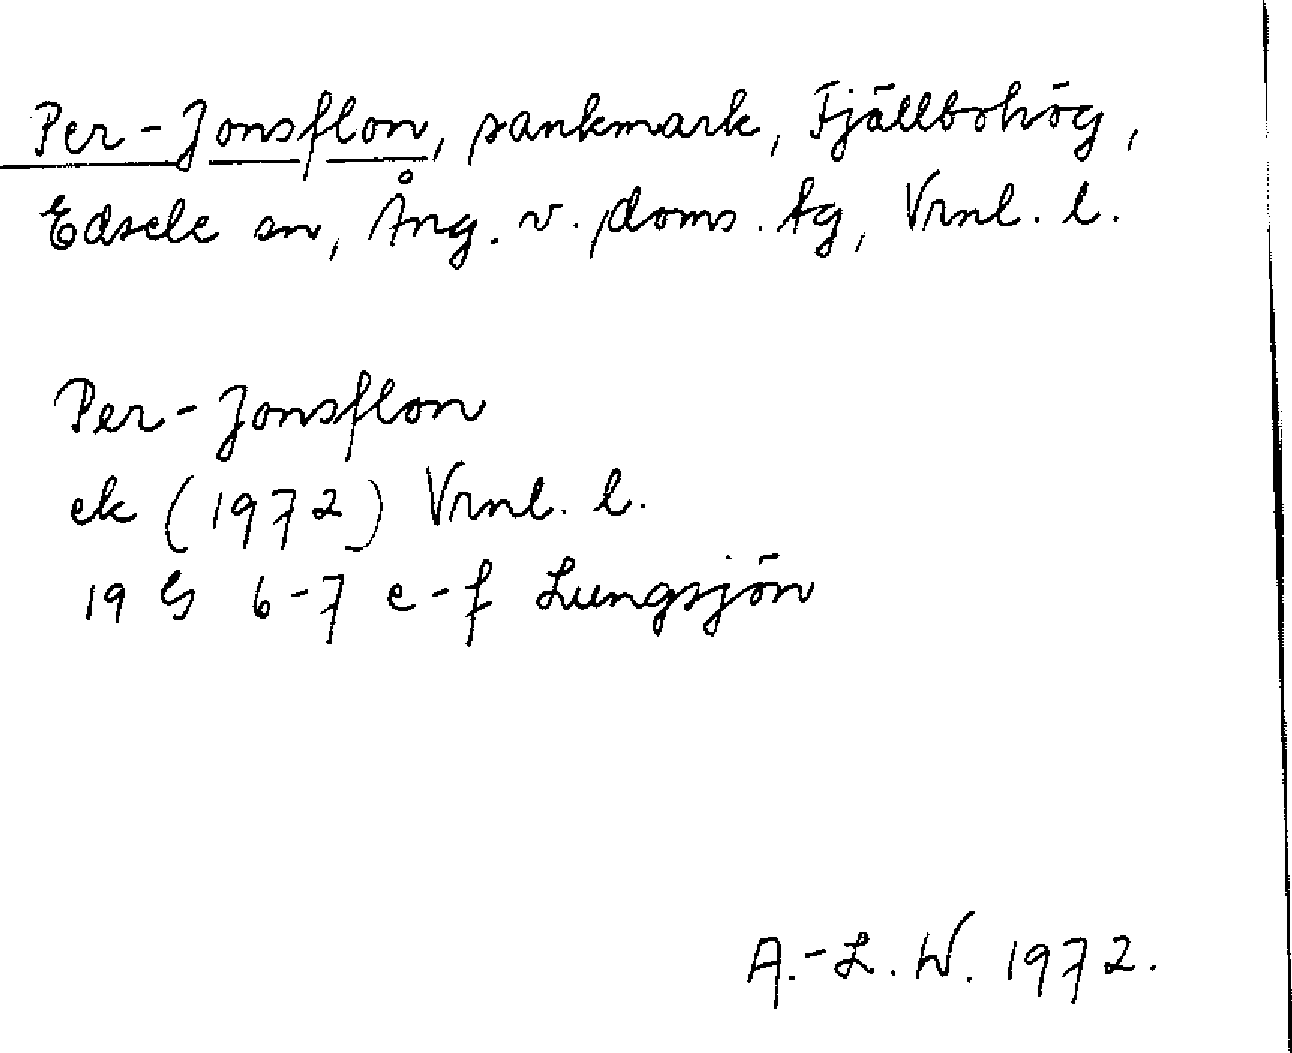 Per-Jonsflon, sankmark, Fjällbohög,
Edsele sn, Ång. v. doms. tg, Vrnl. l.
Per-Jonsflon
ek (1972) Vrnl. l.
19 G 6-7 e-f Lungsjön
A.-L. W. 1972.